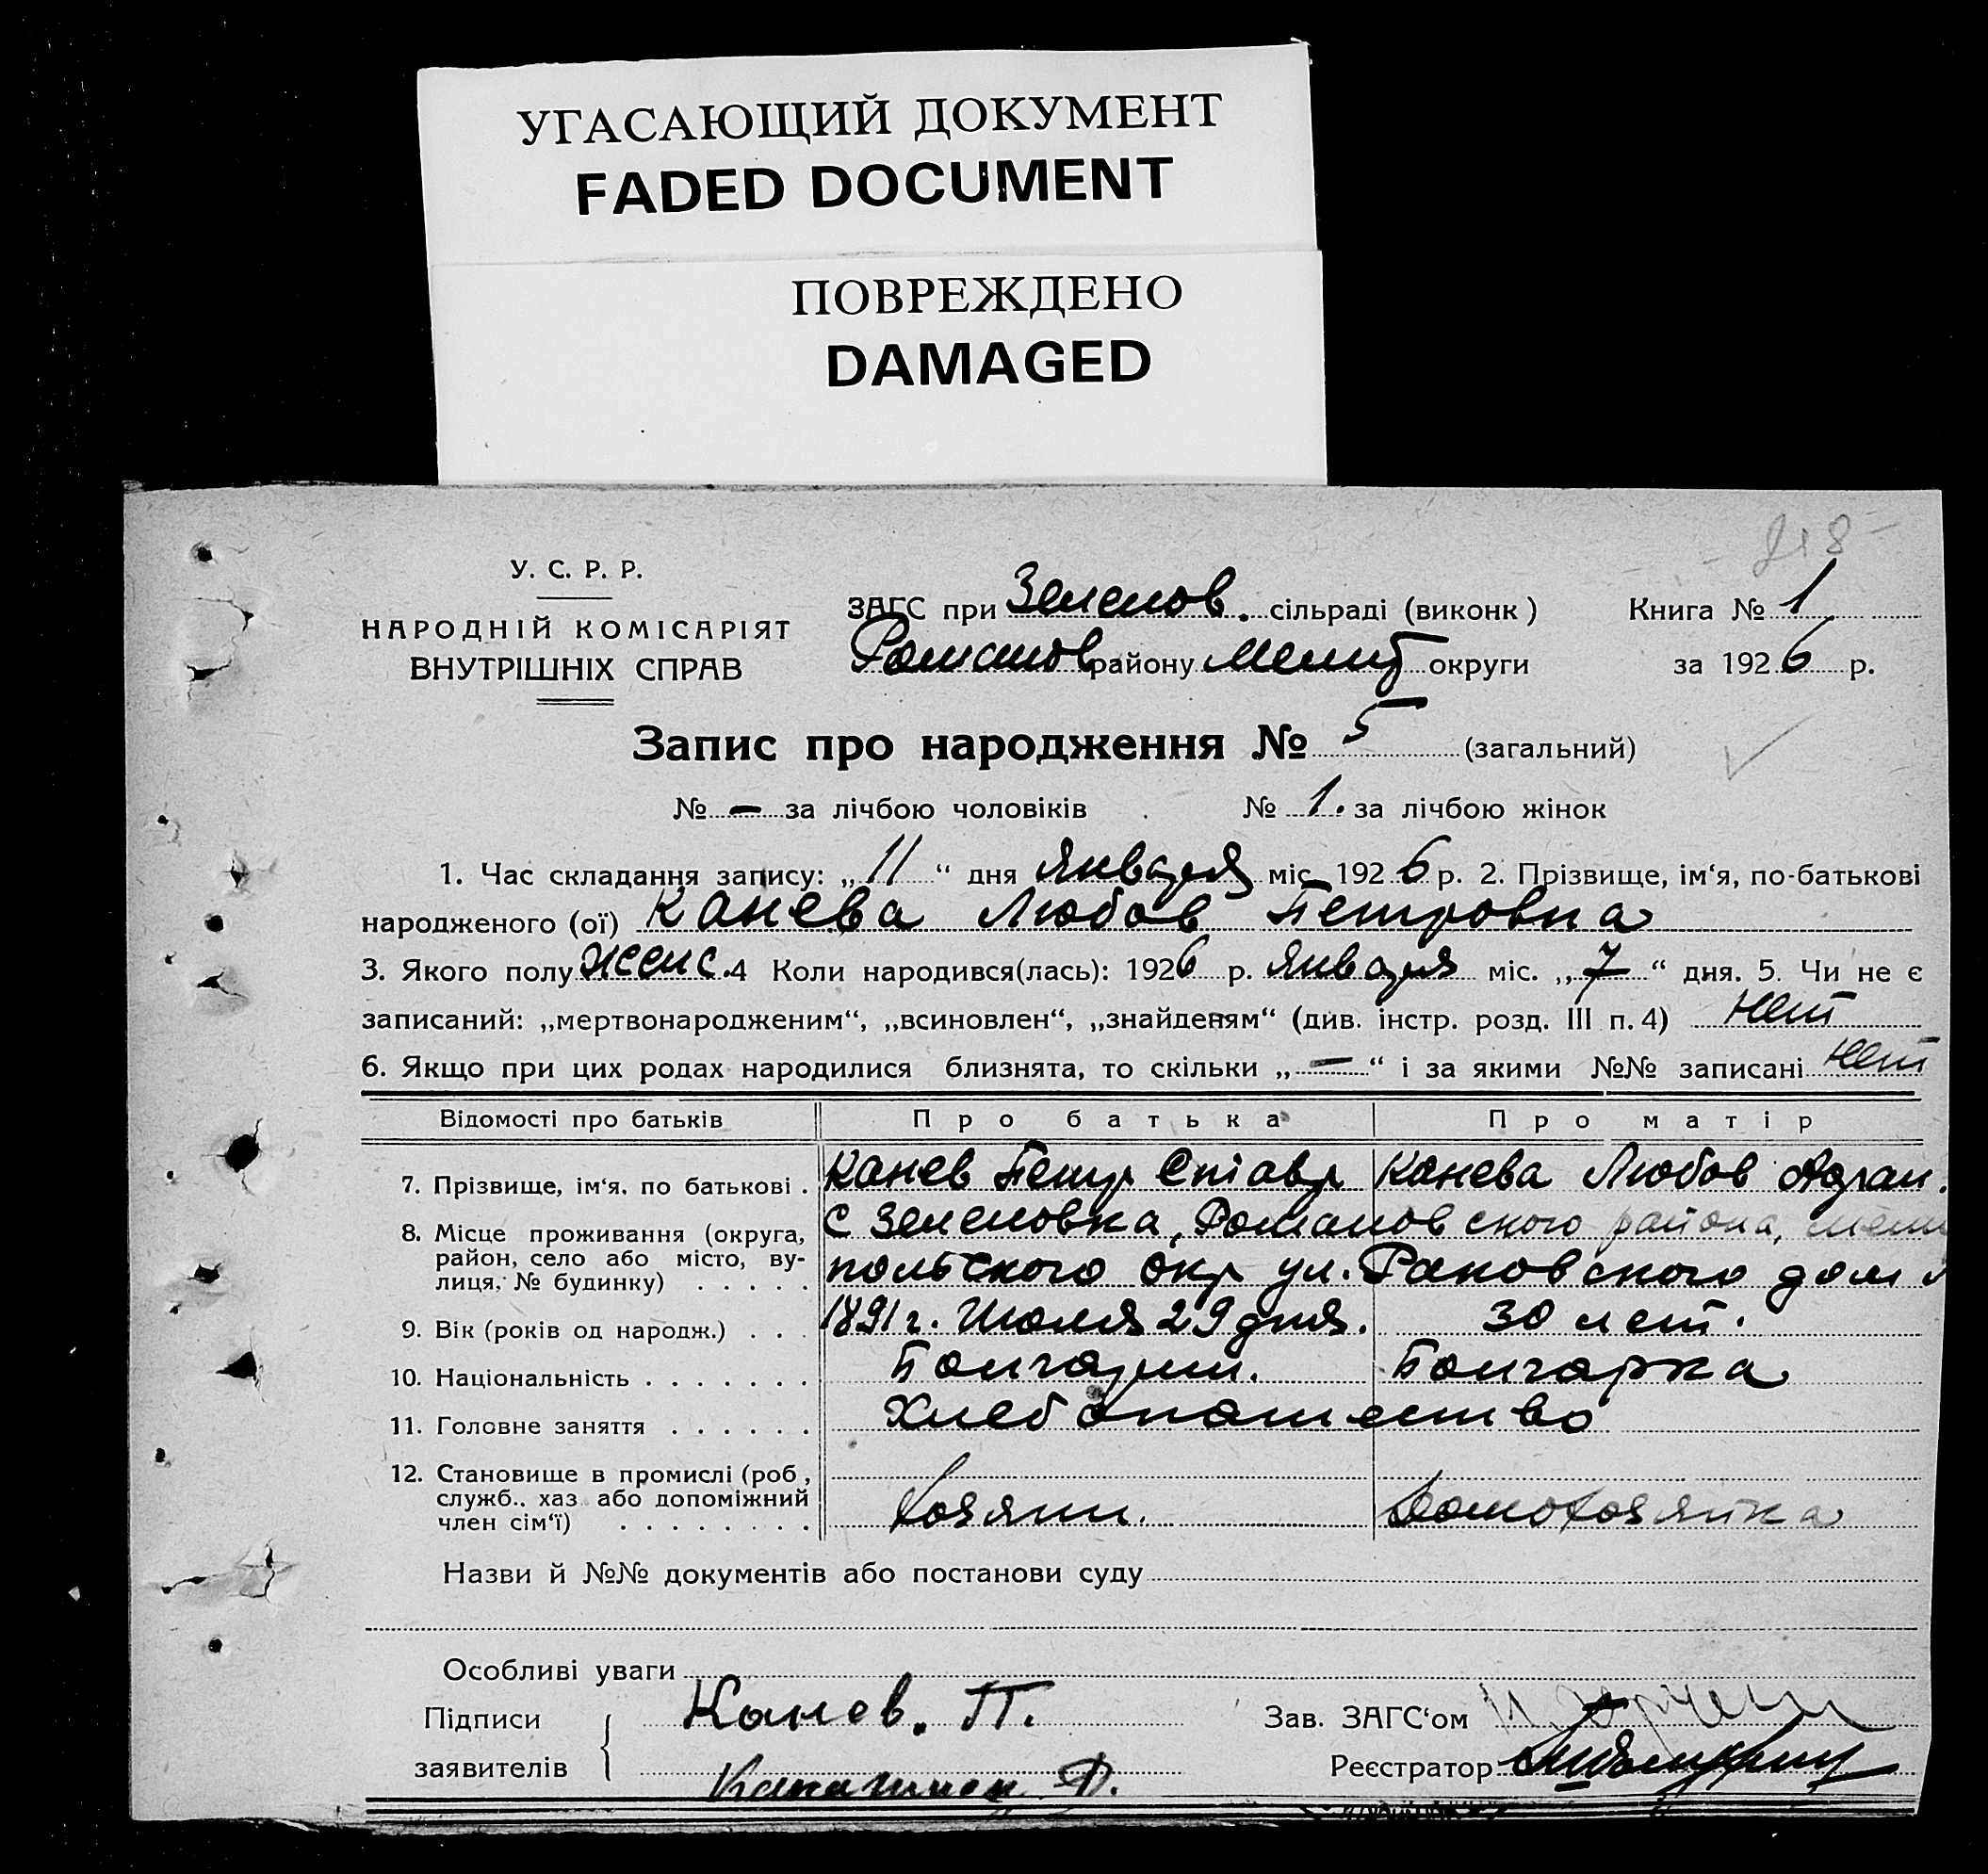 УГАСАЮЩИЙ ДОКУМЕНТ
FADED DOCUMENT
ПОВРЕЖДЕНО
DAMAGED
У. С. Р. Р.
НАРОДНІЙ КОМІСАРІЯТ
ВНУТРІШНІХ СПРАВ
ЗАГС при Зеленов. сільраді (виконк) Книга № 1
Романов району Мелит округи за 1926 р.
Запис про народження № 5 (загальний)
№ – за лічбою чоловіків № 1. за лічбою жінок
1. Час складання запису: „11“ дня Января міс. 1926 р. 2. Прізвище, ім‘я, по-батькові
народженого (ої) Канева Любов Петровна
3. Якого полу женс. 4 Коли народився(лась): 1926 р. Января міс. „7“ дня. 5. Чи не є
записаний: „мертвонародженим“, „всиновлен“, „знайденям“ (див. інстр. розд. III п. 4) нет
6. Якщо при цих родах народилися близнята, то скільки „–“ і за якими №№ записані нет
Відомості про батьків Про батька Про матір
7. Прізвище, ім‘я, по батькові . Канев Петр Ставр Канева Любов Адам.
8. Місце проживання (округа, район, село або місто, вулиця, № будинку) . . . . . С Зеленовка, Романовского района, мели
польского окр ул. Раковского дом
9. Вік (років од народж.) . . . 1891 г. Июля 29 дня. 30 лет.
10. Національність . . . . . . . Болгарин. Болгарка
11. Головне заняття . . . . . . Хлебопашество
12. Становище в промислі (роб, служб.. хаз або допоміжний член сім‘ї) . . . . . . . . Хозяин. Домохозяйка
Назви й №№ документів або постанови суду
Особливі уваги
Підписи Канев. П. Зав. ЗАГС‘ом
заявителів Реєстратор